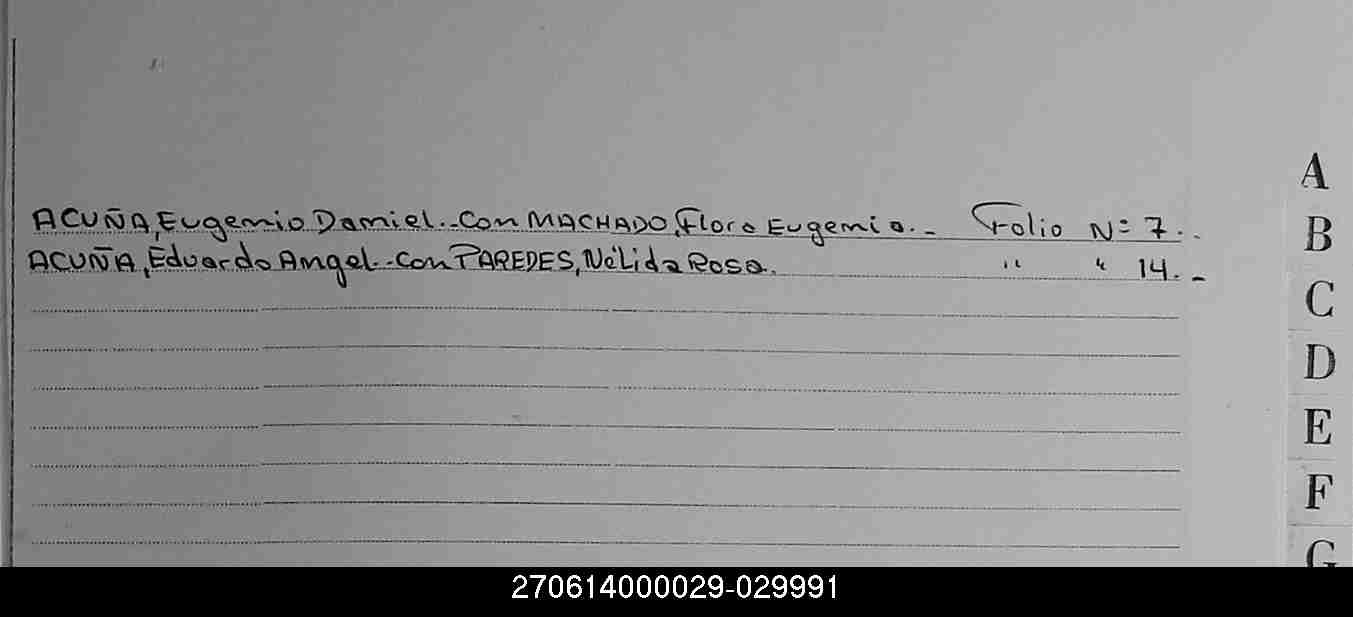 ACUÑA, Eugenio Daniel.-Con MACHADO, Flora Eugenia.- Folio Nº 7.-
ACUÑA, Eduardo Angel.-Con PAREDES, Nélida Rosa. " " 14.-
A
B
C
D
E
F
G
270614000029-029991